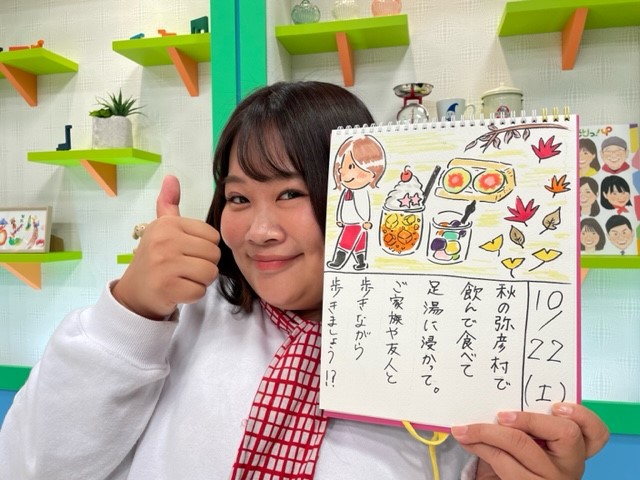 10/22(土)
秋の弥彦村で
飲んで食べて
足湯に浸かって。
ご家族や友人と
歩きながら
歩きましょう!?